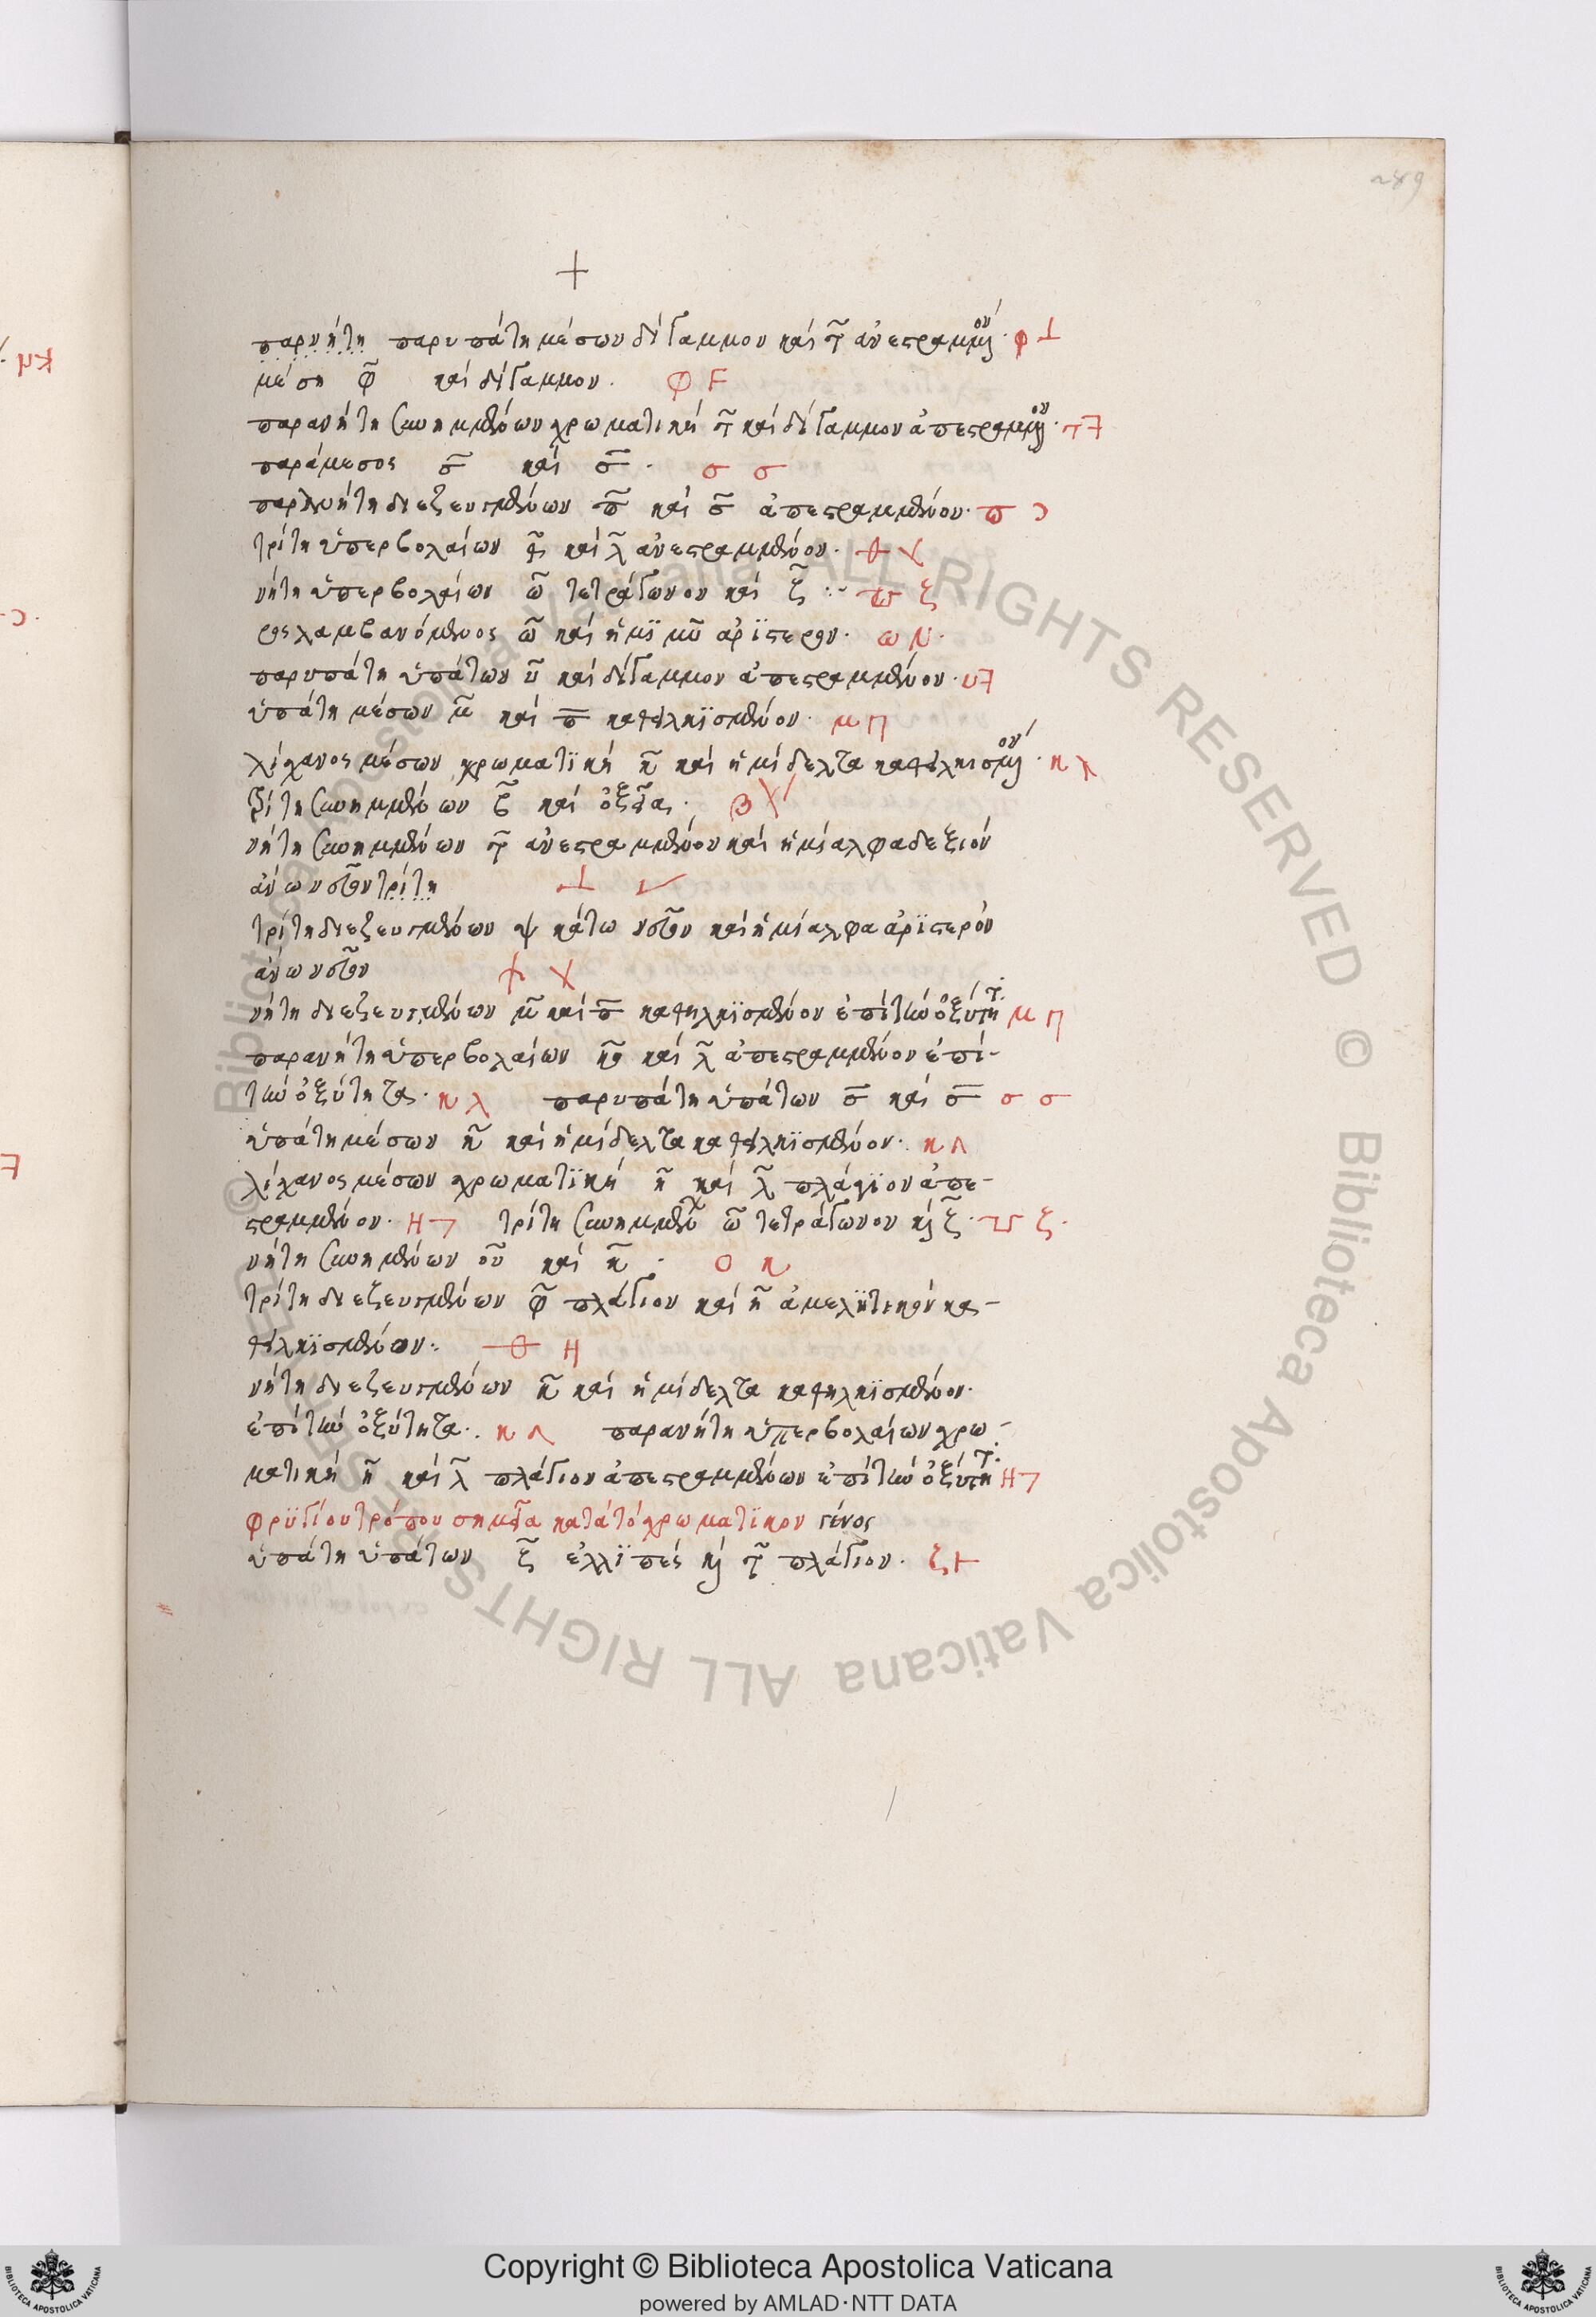 289
+
παρνήτη παρυπάτη μέσων δίγαμμον καὶ τ̄ ἀνεστραμμένον · φ ⊥
μέση φ̄ καὶ δίγαμμον. Φ F
παρανήτη συνημμένων χρωματικὴ τ̄ καὶ δίγαμμον ἀπεστραμμένον ·
παράμεσος σ̄ καὶ σ̄ · σ σ
διεζευγμένων π̄ καὶ σ̄ ἀπεστραμμένον · π Ɔ
τρίτη ὑπερβολαίων καὶ λ̄ ἀνεστραμμένον ·
νήτη ὑπερβολαίων ω̄ τετράγωνον καὶ ζ̄ :~ ζ
προσλαμβανόμενος ω̄ καὶ ἡμὶ μῦ ἀρϊστερὸν · ω
παρυπάτη ὑπάτων ῡ καὶ δίγαμμον ἀπεστραμμένον · υ
ὑπάτη μέσων μ̄ καὶ π̄ καθειλκϊσμένον · μ Π
λίχανος μέσων χρωματϊκὴ κ̄ καὶ ἡμίδελτα καθειλκισμένον · κ
τρίτη συνημμένων β̄ καὶ ὀξεῖας · β
νήτη συνημμένων τ̄ ἀνεστραμμένον καὶ ἡμίαλφα δεξιὸν
ἄνω νεῦον τρίτη ⊥
τρίτη διεζευγμένων ψ κάτω νεῦον καὶ ἡμίαλφα ἀρϊστερὸν
ἄνω νεῦον
νήτη διεζευγμένων μ̄ καὶ π̄ καθηλκϊσμένον ἐπὶ τὴν ὀξύτητ. μ Π
παρανήτη ὑπερβολαίων καὶ λ̄ ἀπεστραμμένον ἐπὶ-
τὴν ὀξύτητας · κ λ παρυπάτη ὑπάτων σ̄ καὶ σ̄ σ σ
ὑπάτη μέσων κ̄ καὶ ἡμίδελτα καθειλκϊσμένον · κ
λίχανος μέσων χρωματϊκὴ η̄ καὶ λ̄ πλάγϊον ἀπε-
στραμμένον · Η ¬ τρίτη συνημμένων ω̄ τετράγωνον καὶ ζ̄ · ζ ·
νήτη συνημμένων οῡ καὶ κ̄ · Ο κ
τρίτη διεζευγμένων φ̄ πλάγιον καὶ η̄ ἀμελητικὸν κα-
θειλκϊσμένον : Η
νήτη διεζευγμένων κ̄ καὶ ἡμίδελτα καθηλκϊσμένον ·
ἐπὶ τὴν ὀξύτητα · κ παρανήτη ὑπερβολαίων χρω-
ματικὴ η̄ καὶ λ̄ πλάγιον ἀπεστραμμένων ἐπὶ τὴν ὀξύτητ. Η ¬
φρϋγίου τρόπου σημεῖα κατὰ τὸ χρωματϊκον γένος
ὑπάτη ὑπάτων ζ̄ ἐλλϊπὲς καὶ τ̄ πλάγιον · ζ ⊢
Copyright © Biblioteca Apostolica Vaticana
powered by AMLAD·NTT DATA